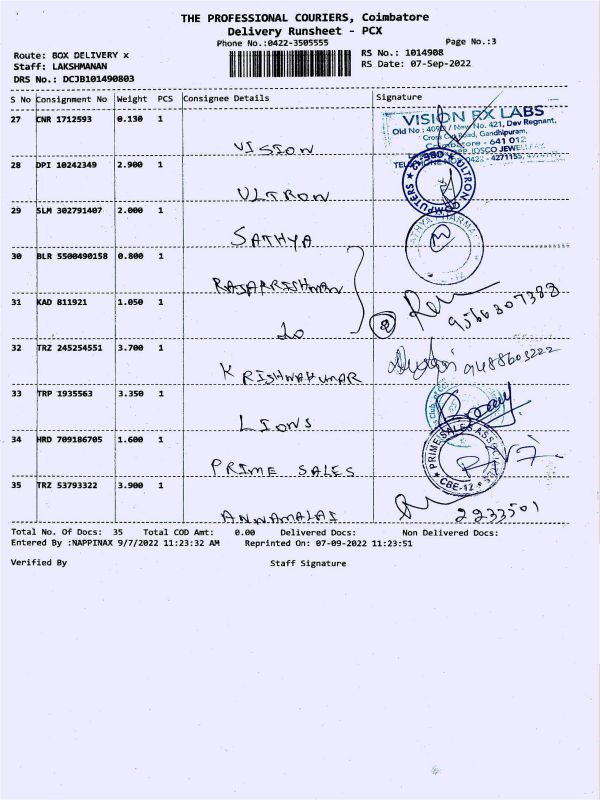 THE PROFESSIONAL COURIERS, Coimbatore
Delivery Runsheet - PCX
Phone No.:0422-3505555
Page No.:3
Route: BOX DELIVERY x
RS No.: 1014908
Staff: LAKSHMANAN
RS Date: 07-Sep-2022
DRS No.: DCJB101490803
S No Consignment No Weight PCS Consignee Details Signature
27 CNR 1712593 0.130 1
VISION
VISION RX LABS
Old No : 409D / New No. 421, Dev Regnant,
Cross Cut Road, Gandhipuram,
Coimbatore - 641 012
JOSCO JEWELLERY
0422 - 4271155,
28 DPI 10242349 2.900 1
ULTRON
ULTRON COMPUTERS CBE-12
29 SLM 302791407 2.000 1
SATHYA
SATHYA PHARMA
30 BLR 5500490158 0.800 1
RAJAKRISHNAN
9566307388
31 KAD 811921 1.050 1
do
2
32 TRZ 245254551 3.700 1
KRISHNAKUMAR
9488603222
33 TRP 1935563 3.350 1
LIONS
34 HRD 709186705 1.600 1
PRIME SALES
PRIME SALES CBE-12
35 TRZ 53793322 3.900 1
ANNAMALAI
2233501
Total No. Of Docs: 35 Total COD Amt: 0.00 Delivered Docs: Non Delivered Docs:
Entered By :NAPPINAX 9/7/2022 11:23:32 AM Reprinted On: 07-09-2022 11:23:51
Verified By Staff Signature